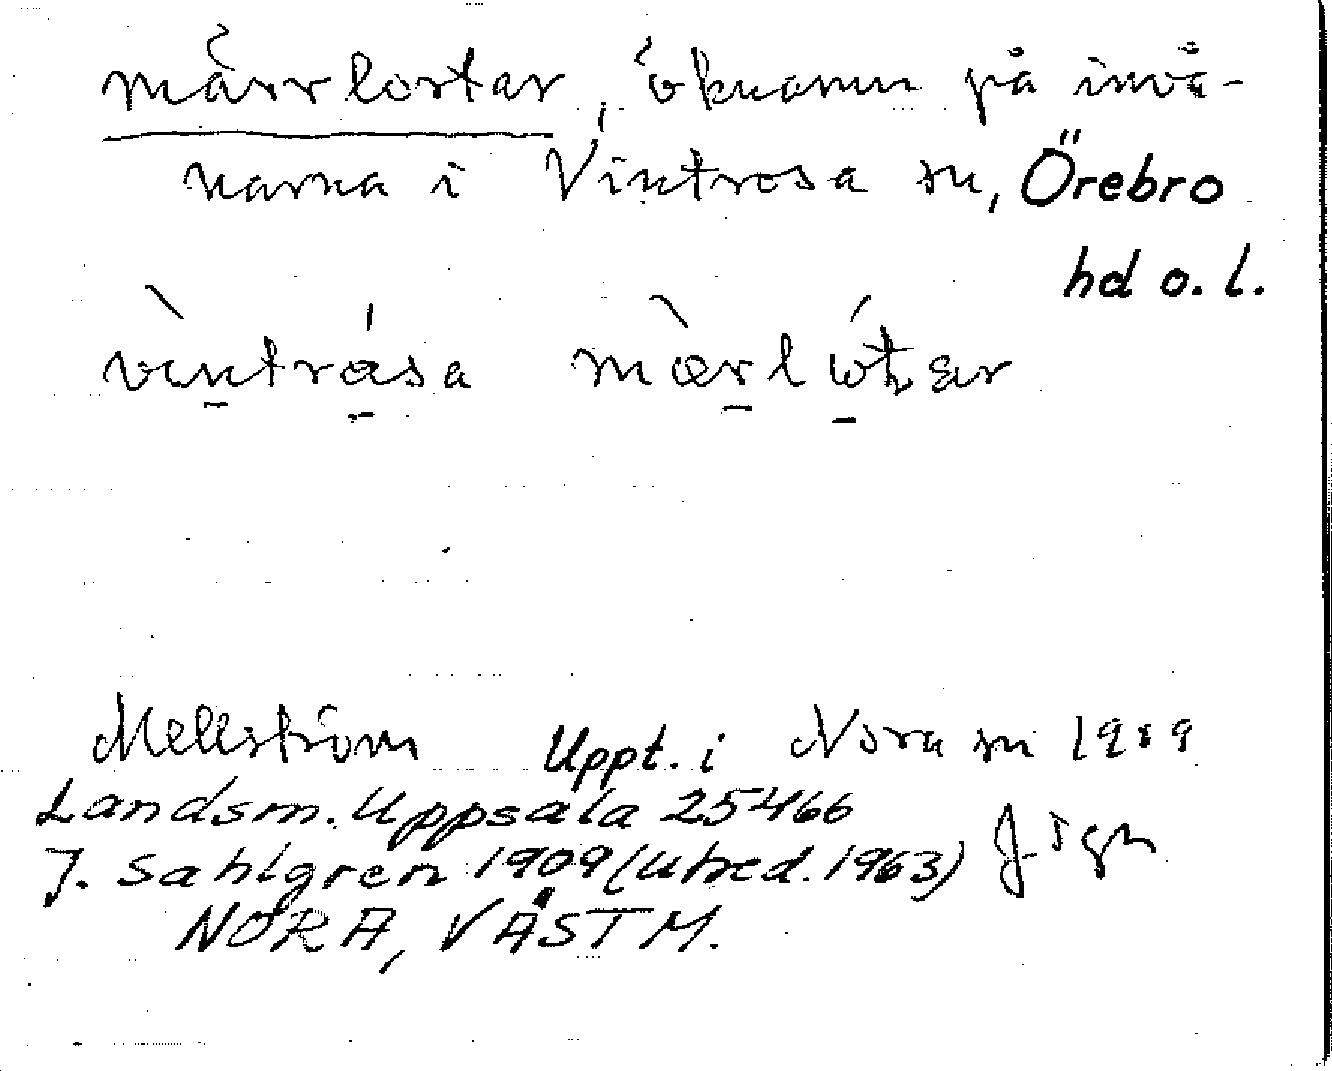 märrlortar, öknamn på invå-
narna i Vintrosa sn, Örebro
hd o. l.
vìntrása mæ̀rlótar
Mellström Uppt. i Nora sn 1909
Landsm. Uppsala 25466
J. Sahlgren 1909 (utred. 1963) J Sgn
NORA, VÄSTM.